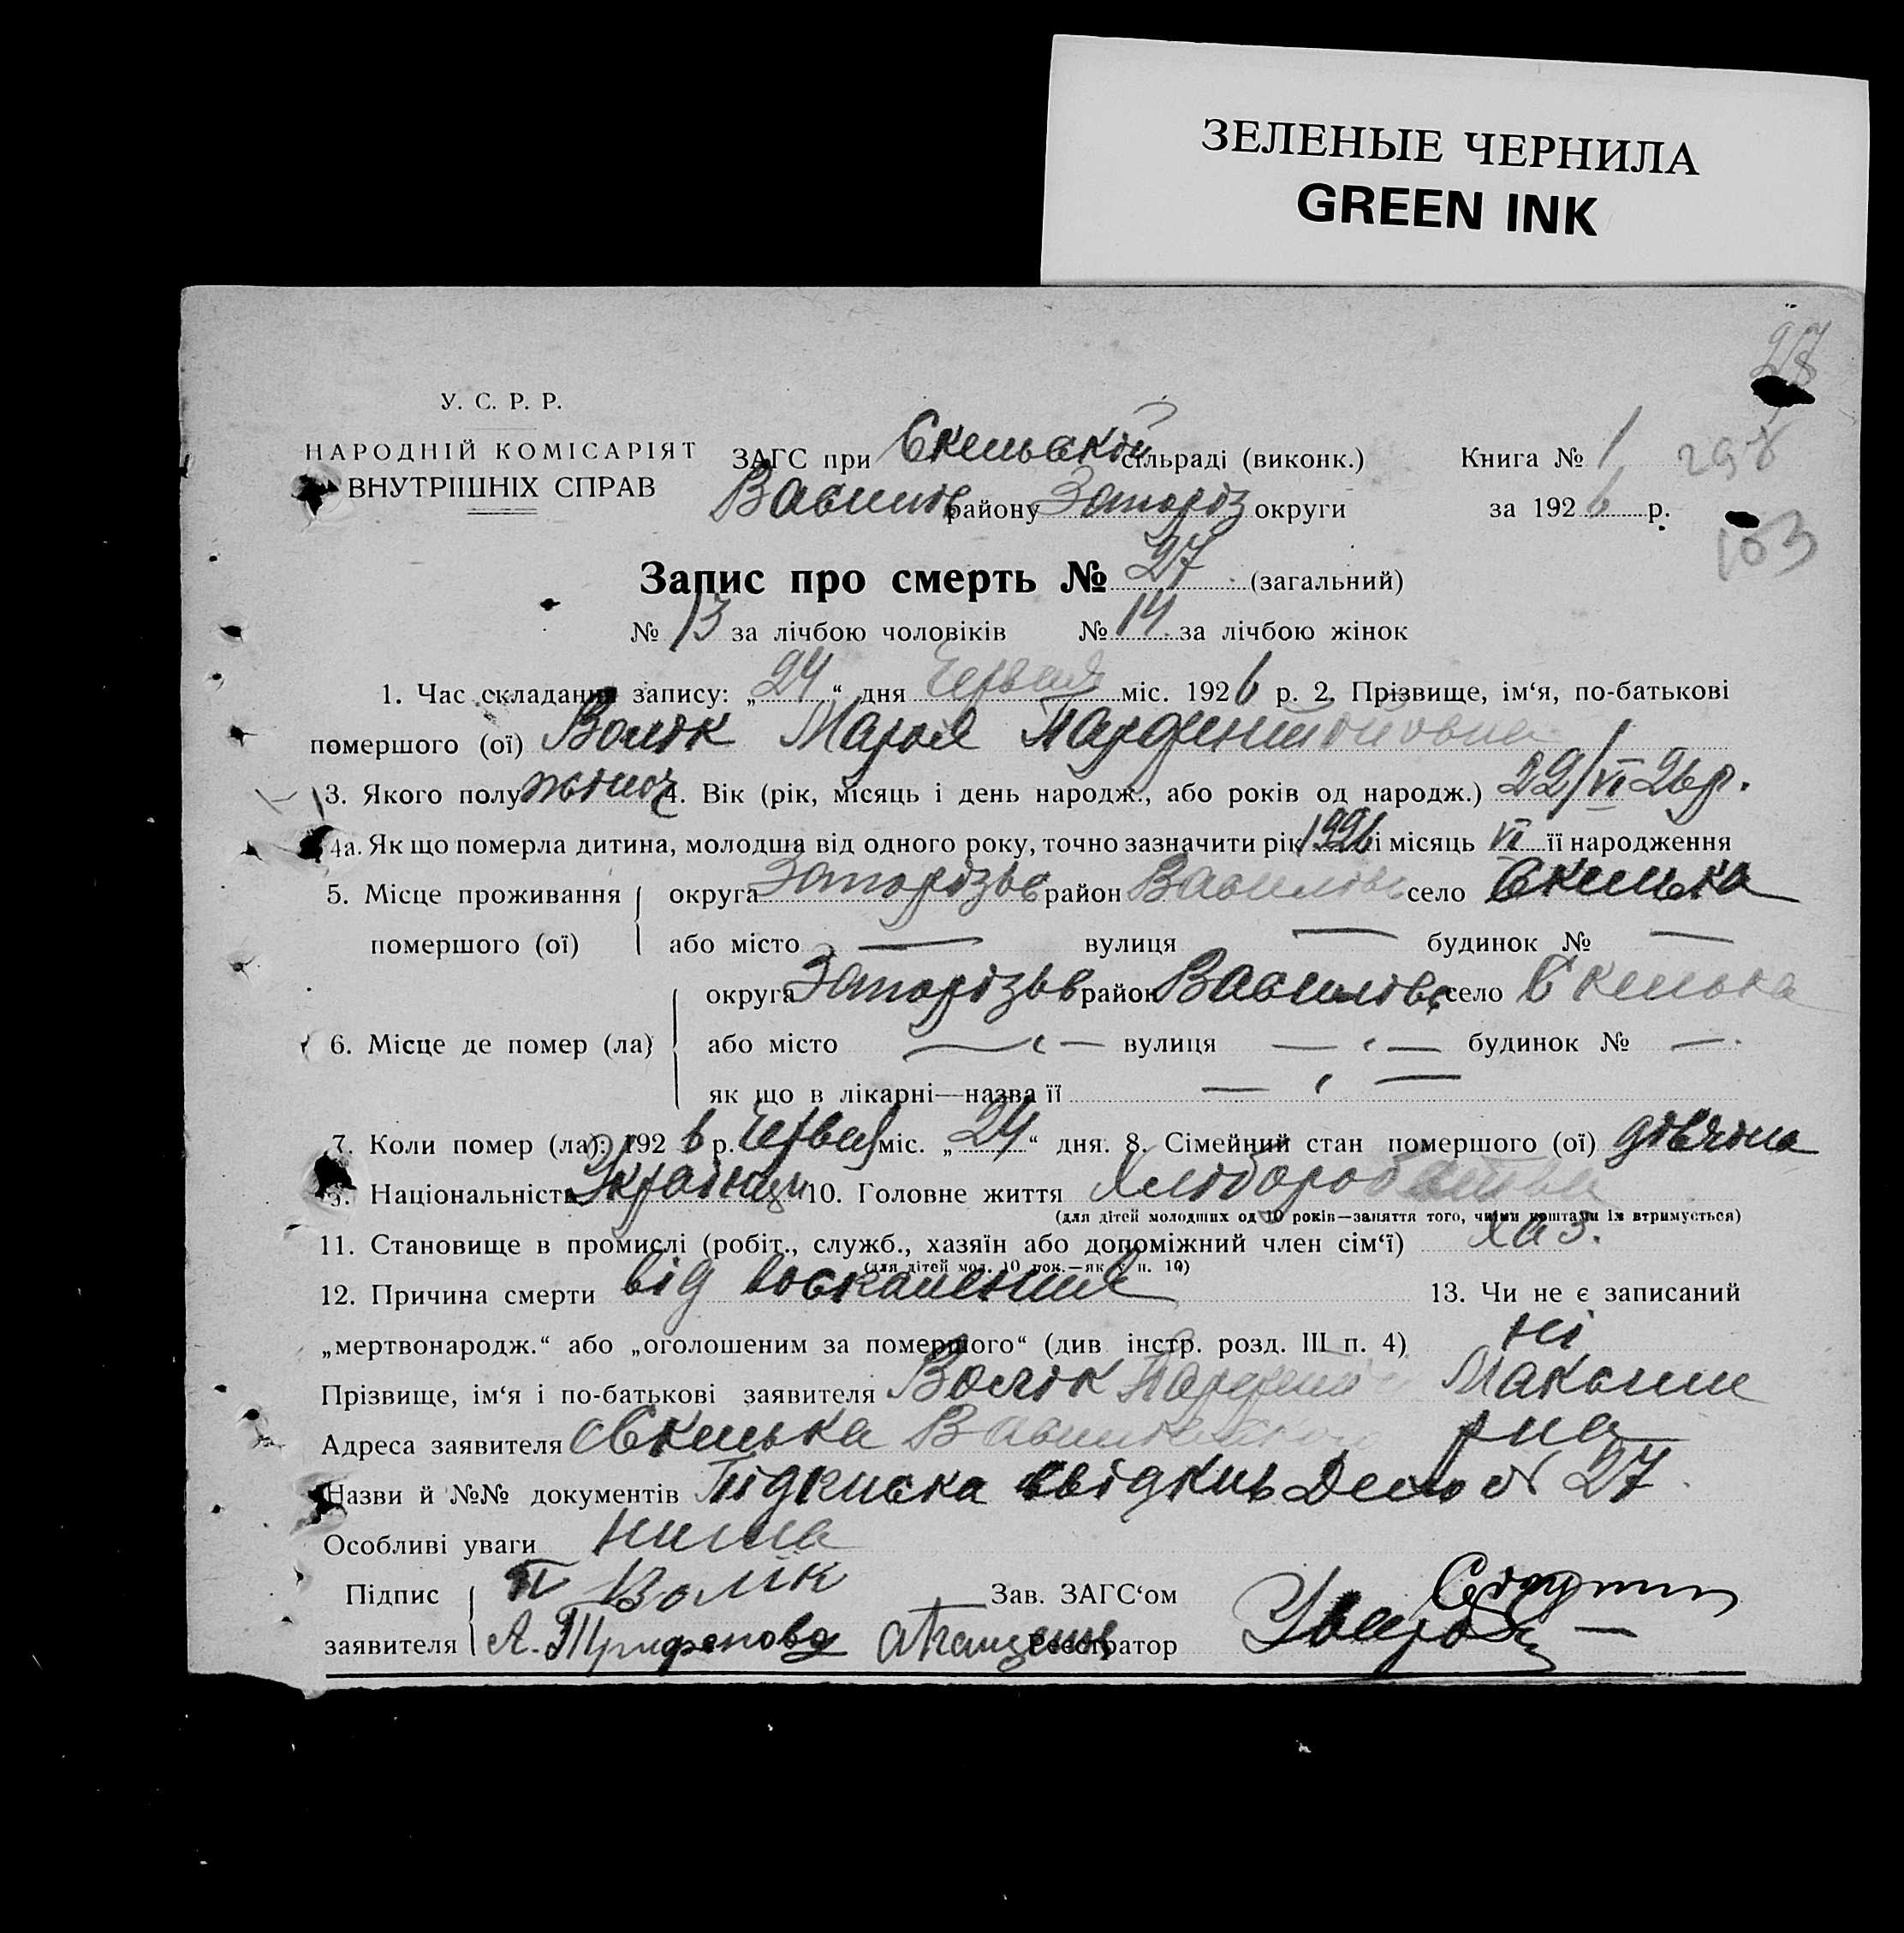 ЗЕЛЕНЫЕ ЧЕРНИЛА
GREEN INK
27
У. С. Р. Р.
НАРОДНІЙ КОМІСАРІЯТ
ВНУТРІШНІХ СПРАВ
ЗАГС при Скельской сільраді (виконк.)
Книга № 1
298
Василів району Запоріз округи
за 1926 р.
153
Запис про смерть № 27 (загальний)
№ 13 за лічбою чоловіків № 14 за лічбою жінок
1. Час складання запису: „24“ дня Червня міс. 1926 р. 2. Прізвище, ім‘я, по-батькові
помершого (ої) Волік Марія
3. Якого полу жіноч 4. Вік (рік, місяць і день народж., або років од народж.) 22/VI 26 р.
4а. Як що померла дитина, молодша від одного року, точно зазначити рік 1926 і місяць VI її народження
5. Місце проживання помершого (ої) округа Запорізьв район Василівс село Скелька
або місто — вулиця — будинок № —
6. Місце де помер (ла) округа Запорізьв район Василівс село Скелька
або місто — „ — вулиця — „ — будинок № —
як що в лікарні—назва її — „ —
7. Коли помер (ла): 1926 р. Червня міс. „24“ дня. 8. Сімейний стан помершого (ої) дівчина
9. Національність Українци 10. Головне життя Хліборобства
(для дітей молодших од 10 років—заняття того, чиїми коштами їх втримується)
11. Становище в промислі (робіт., служб., хазяїн або допоміжний член сім‘ї) хаз.
(для дітей мол. 10 рок.—як у п. 10)
12. Причина смерти від воскаления 13. Чи не є записаний
„мертвонародж.“ або „оголошеним за помершого“ (див інстр. розд. III п. 4) ні
Прізвище, ім‘я і по-батькові заявителя Волік Максим
Адреса заявителя сСкелька р на
Назви й №№ документів Підписка свідків Дело № 27
Особливі уваги нима
Підпис заявителя П Волік
Зав. ЗАГС‘ом
А. Трифонова
Реєстратор